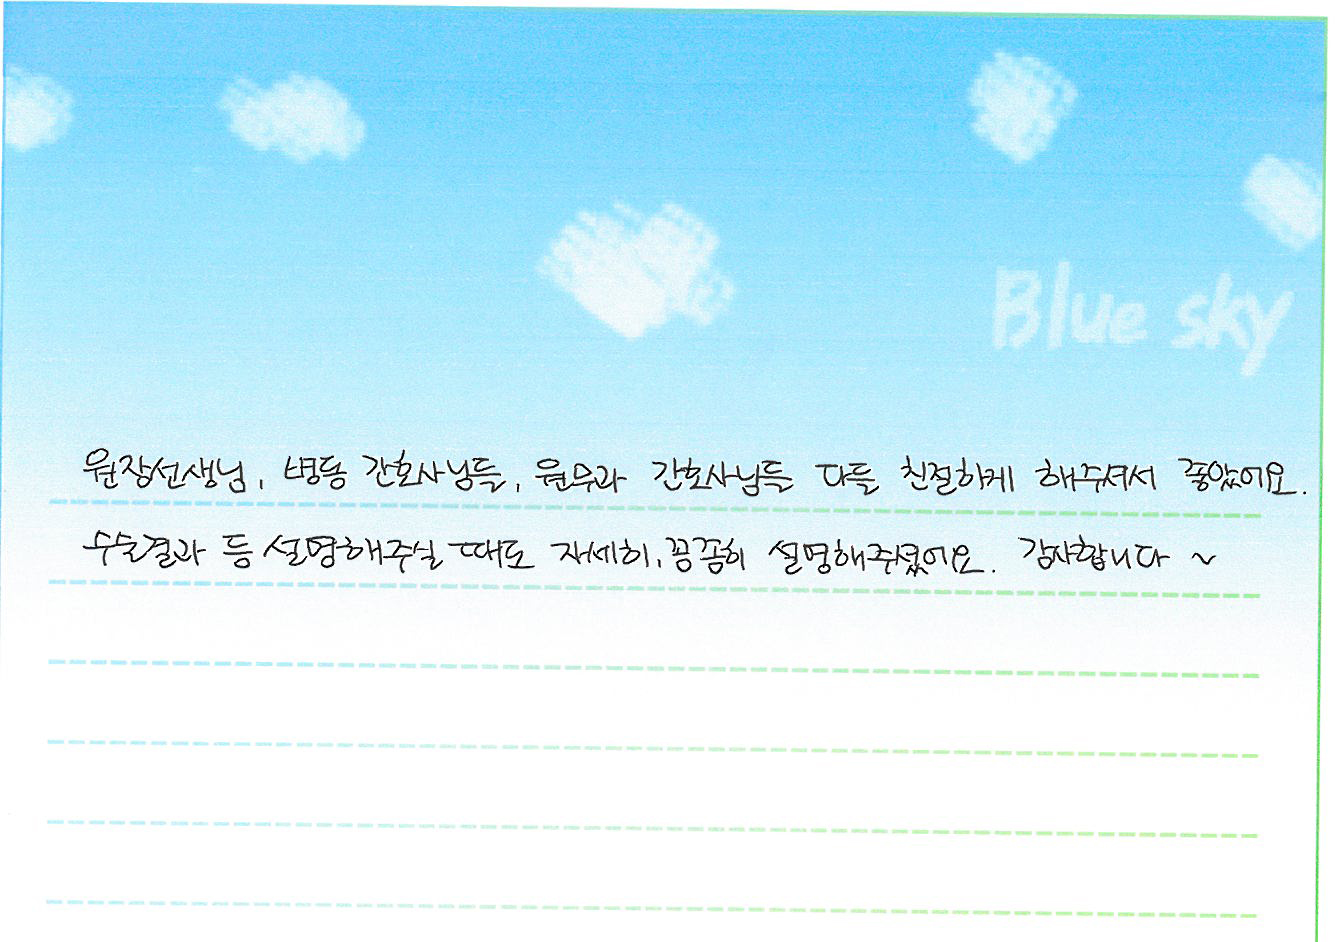 Blue sky
원장선생님, 병동 간호사님들, 원무과 간호사님들 다들 친절하게 해주셔서 좋았어요.
수술결과 등 설명해주실 때도 자세히, 꼼꼼히 설명해주셨어요. 감사합니다 ~